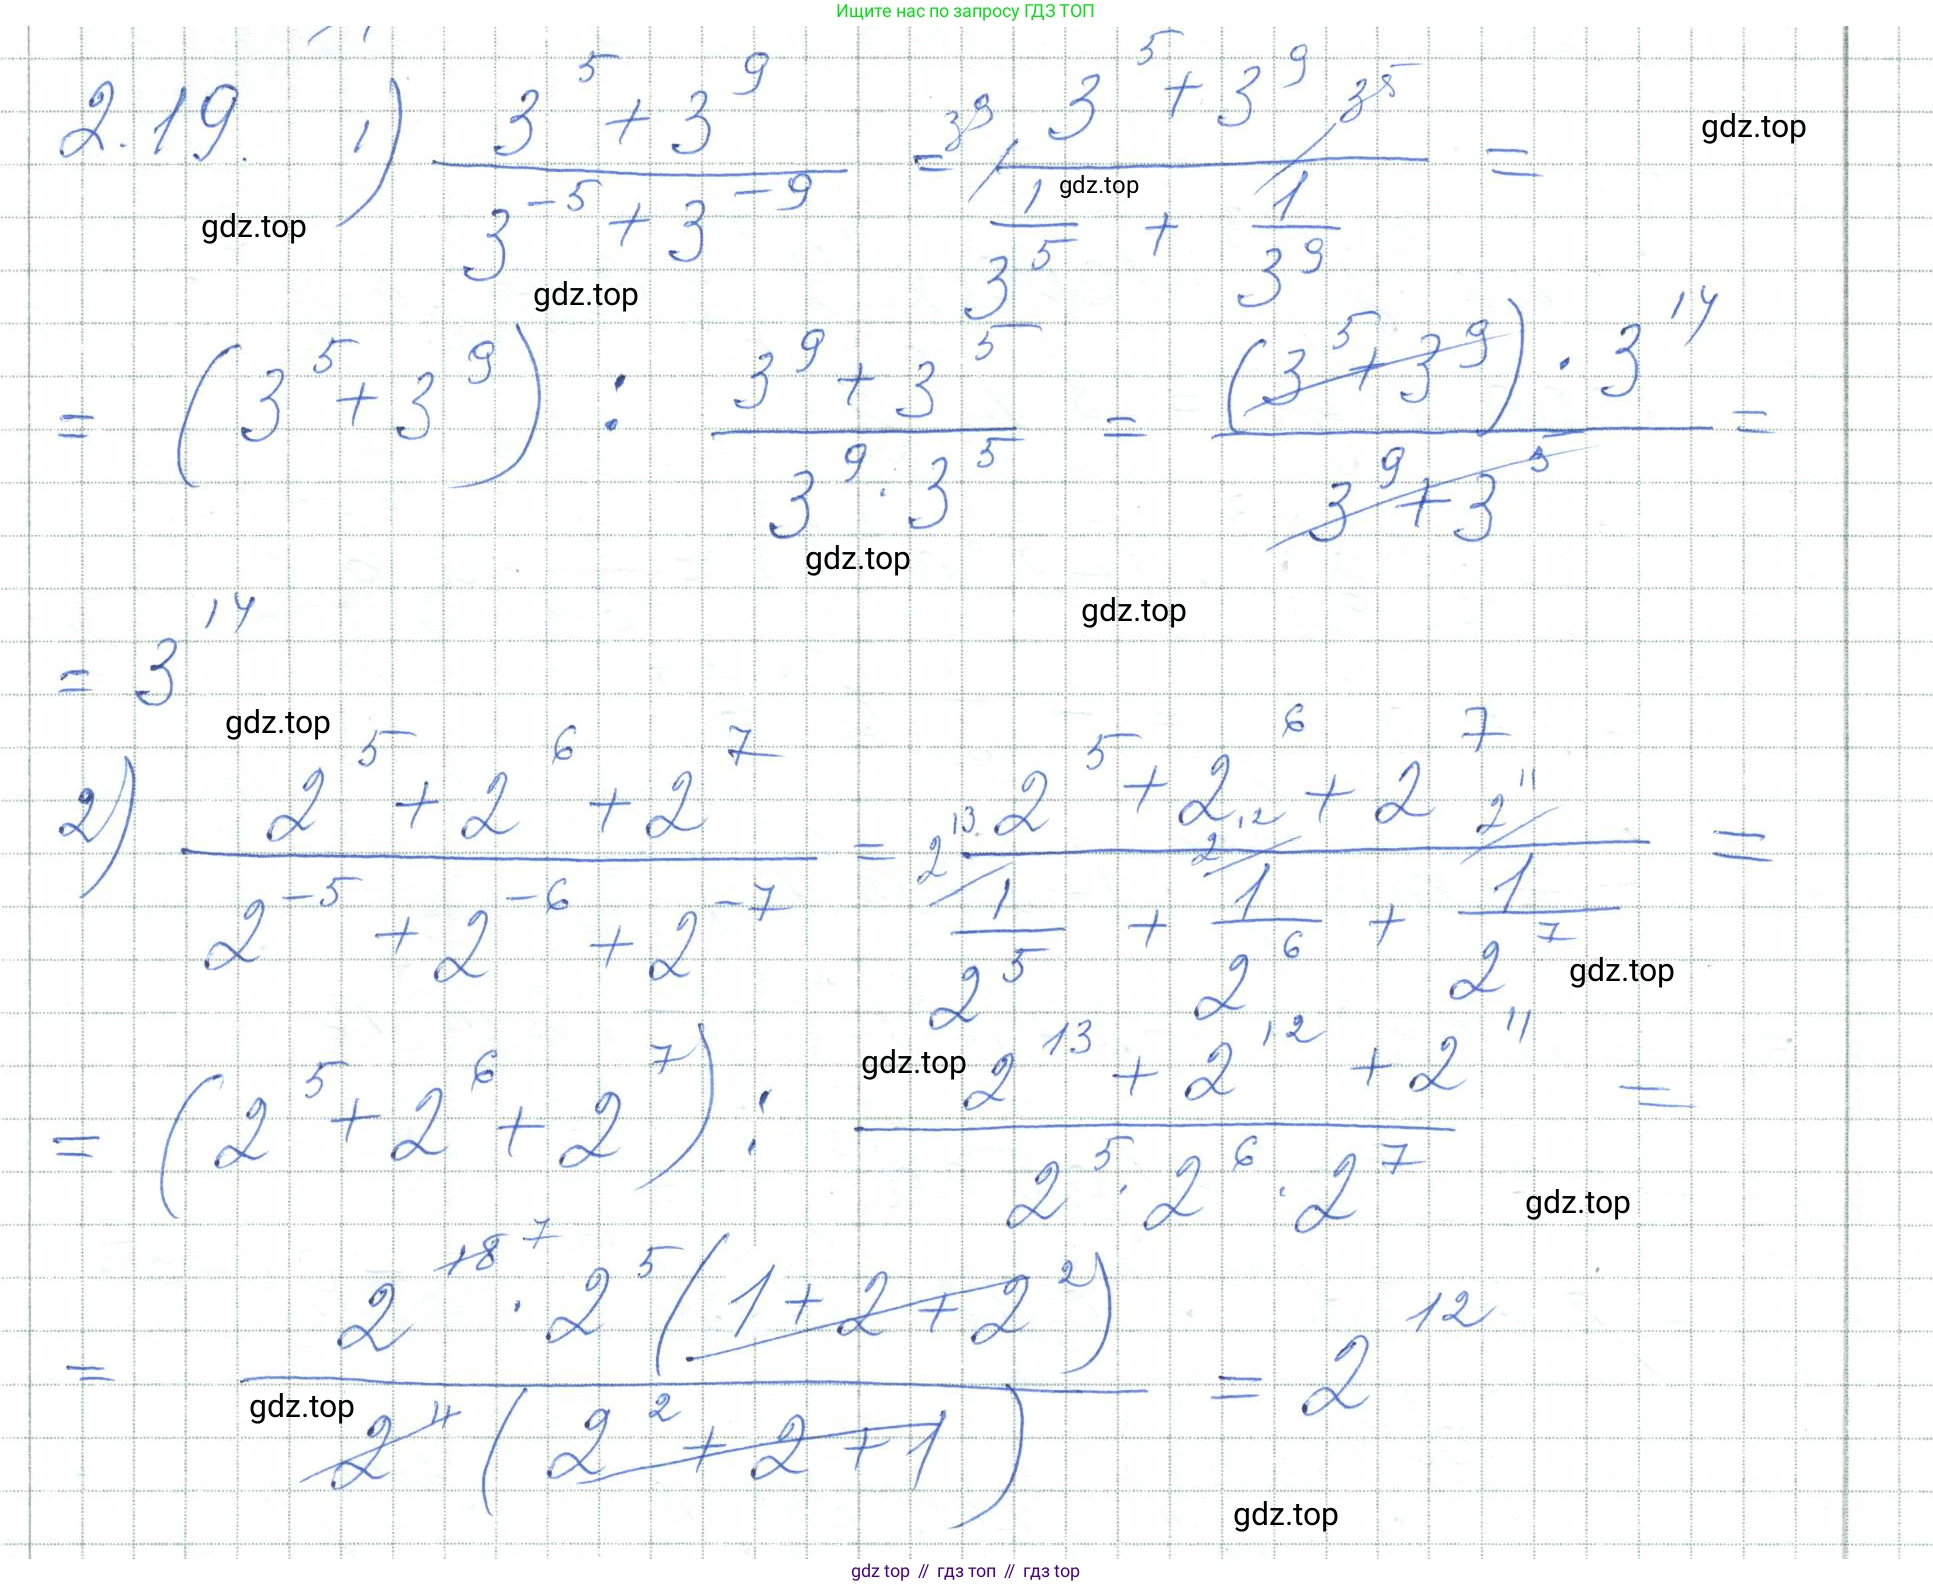 Ищите нас по запросу ГДЗ ТОП
2.19. 1) (3^5 + 3^9)/(3^{-5} + 3^{-9}) = (3^5 + 3^9)/(^{3^9/}1/3^5 + ^{3^5/}1/3^9) =
gdz.top
gdz.top
gdz.top
gdz.top
= (3^5 + 3^9) : (3^9 + 3^5)/(3^9 · 3^5) = ((3^5 + 3^9) · 3^14)/(3^9 + 3^5) =
gdz.top
gdz.top
= 3^14
gdz.top
2) (2^5 + 2^6 + 2^7)/(2^{-5} + 2^{-6} + 2^{-7}) = (2^5 + 2^6 + 2^7)/(^{2^13/}1/2^5 + ^{2^12/}1/2^6 + ^{2^11/}1/2^7) =
gdz.top
gdz.top
= (2^5 + 2^6 + 2^7) : (2^13 + 2^12 + 2^11)/(2^5 · 2^6 · 2^7) =
gdz.top
= (2^{18 7} · 2^5 (1 + 2 + 2^2))/(2^11 (2^2 + 2 + 1)) = 2^12
gdz.top
gdz.top
gdz top // гдз топ // гдз top